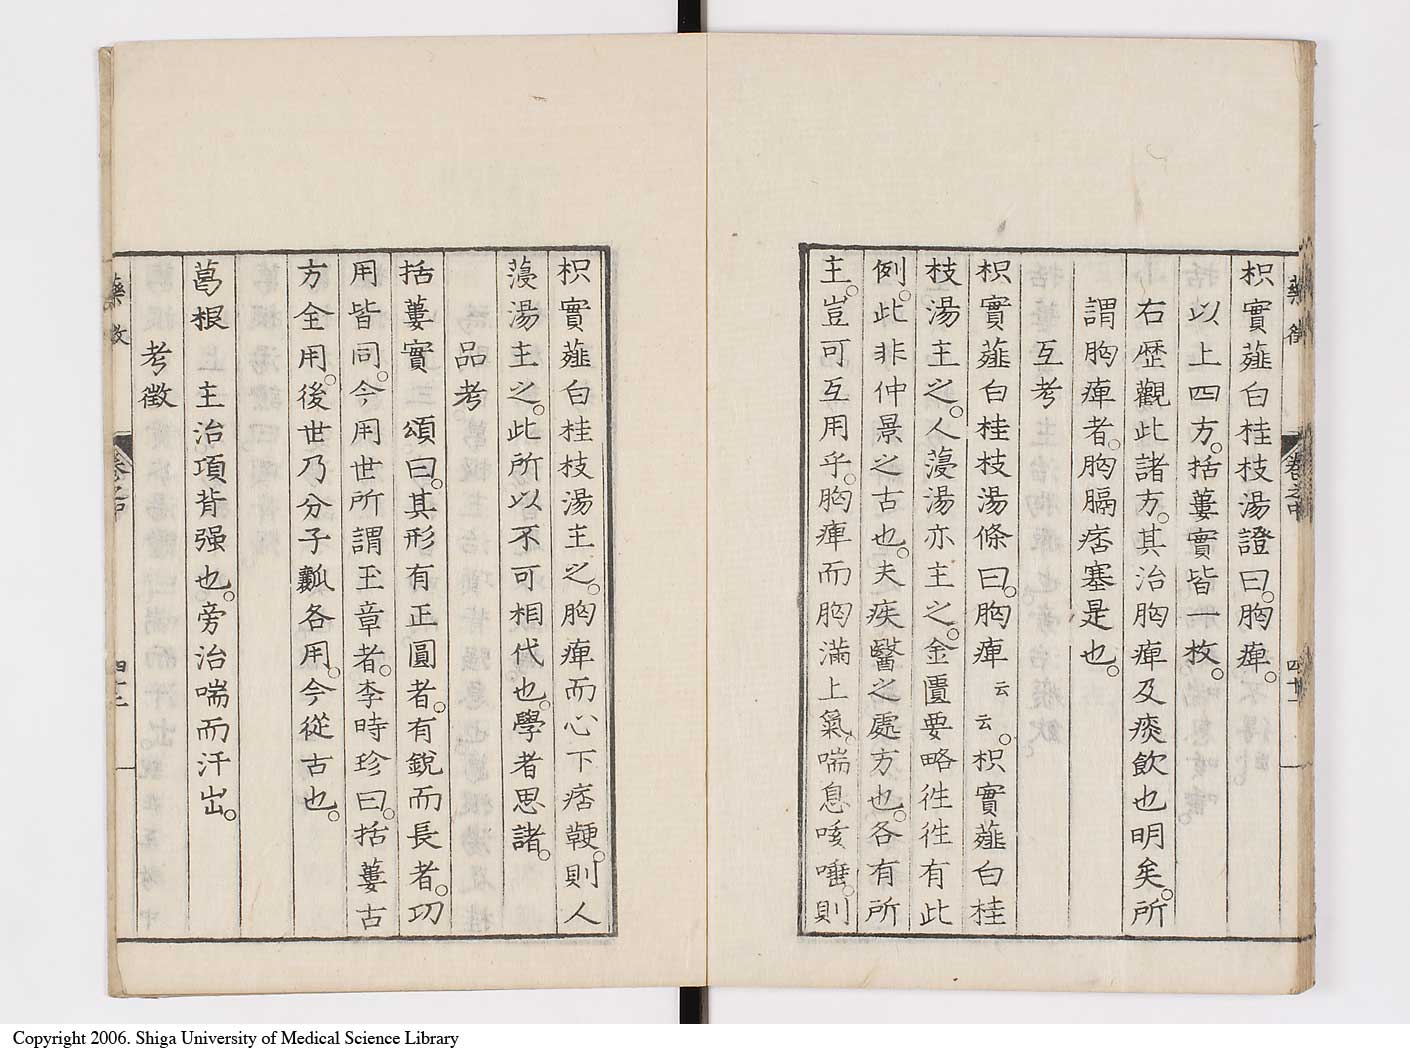 藥徵 卷之中 四十一
枳實薤白桂枝湯證曰。胸痺。
以上四方。括蔞實皆一枚。
右歷觀此諸方。其治胸痺及痰飲也明矣。所
謂胸痺者。胸膈痞塞是也。
互考
枳實薤白桂枝湯條曰。胸痺云云。枳實薤白桂
枝湯主之。人薓湯亦主之。金匱要略徃徃有此
例。此非仲景之古也。夫疾醫之處方也。各有所
主。豈可互用乎。胸痺而胸滿上氣。喘息咳唾。則
枳實薤白桂枝湯主之。胸痺而心下痞鞕。則人
薓湯主之。此所以不可相代也。學者思諸。
品考
括蔞實 頌曰。其形有正圓者。有銳而長者。功
用皆同。今用世所謂玉章者。李時珍曰。括蔞古
方全用。後世乃分子瓤各用。今從古也。
葛根 主治項背强也。旁治喘而汗出。
考徵
藥徵 卷之中 四十二
Copyright 2006. Shiga University of Medical Science Library